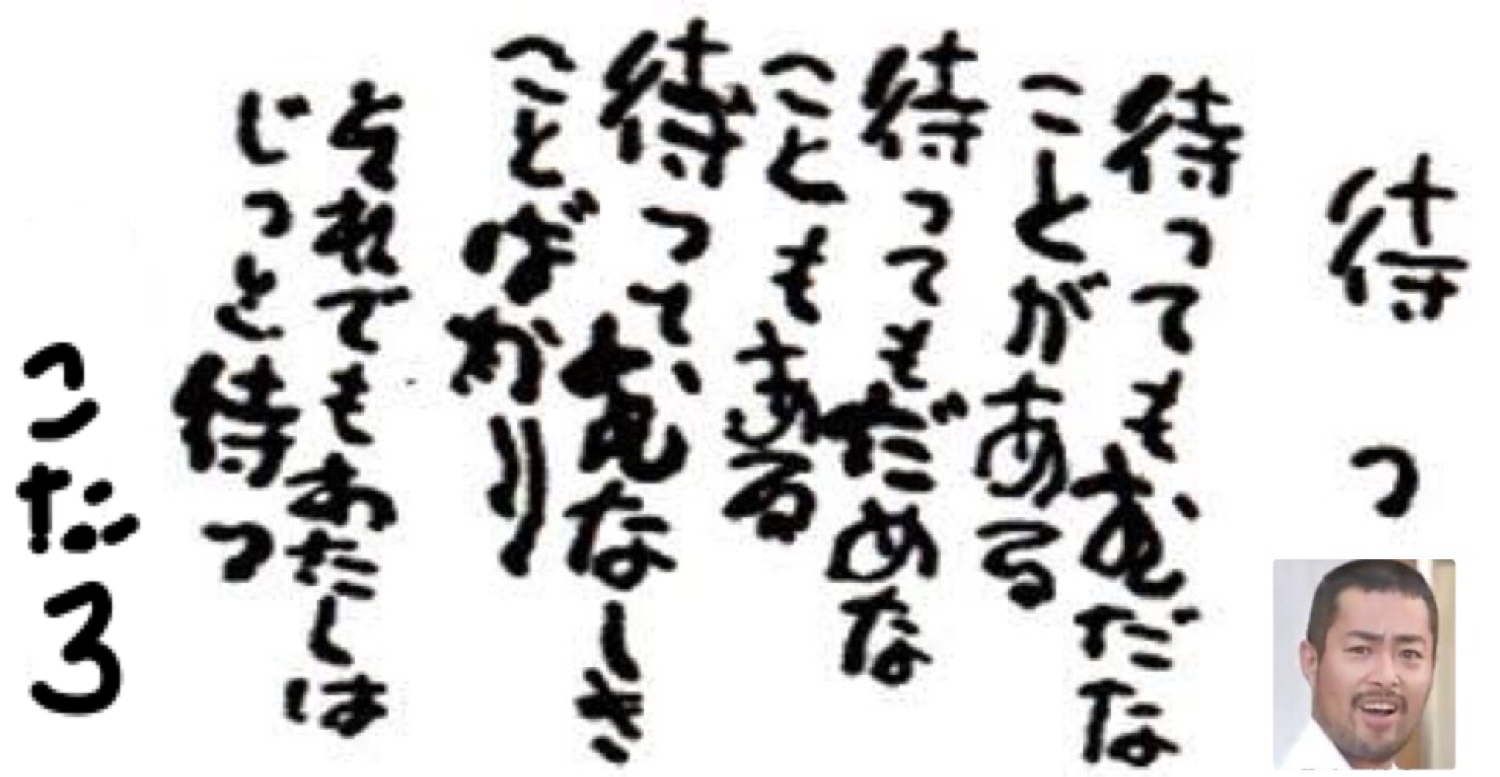 待つ
待ってもむだな
ことがある
待ってもだめな
こともある
待って、むなしき
ことばかり
それでもあたしは
じっと待つ
こたろ